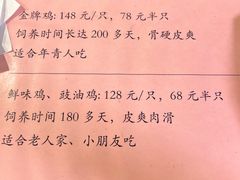 金牌鸡:148 元/只，78 元半只
饲养时间长达 200 多天，骨硬皮爽
适合年青人吃
鲜味鸡、豉油鸡:128 元/只，68 元半只
饲养时间 180 多天，皮爽肉滑
适合老人家、小朋友吃